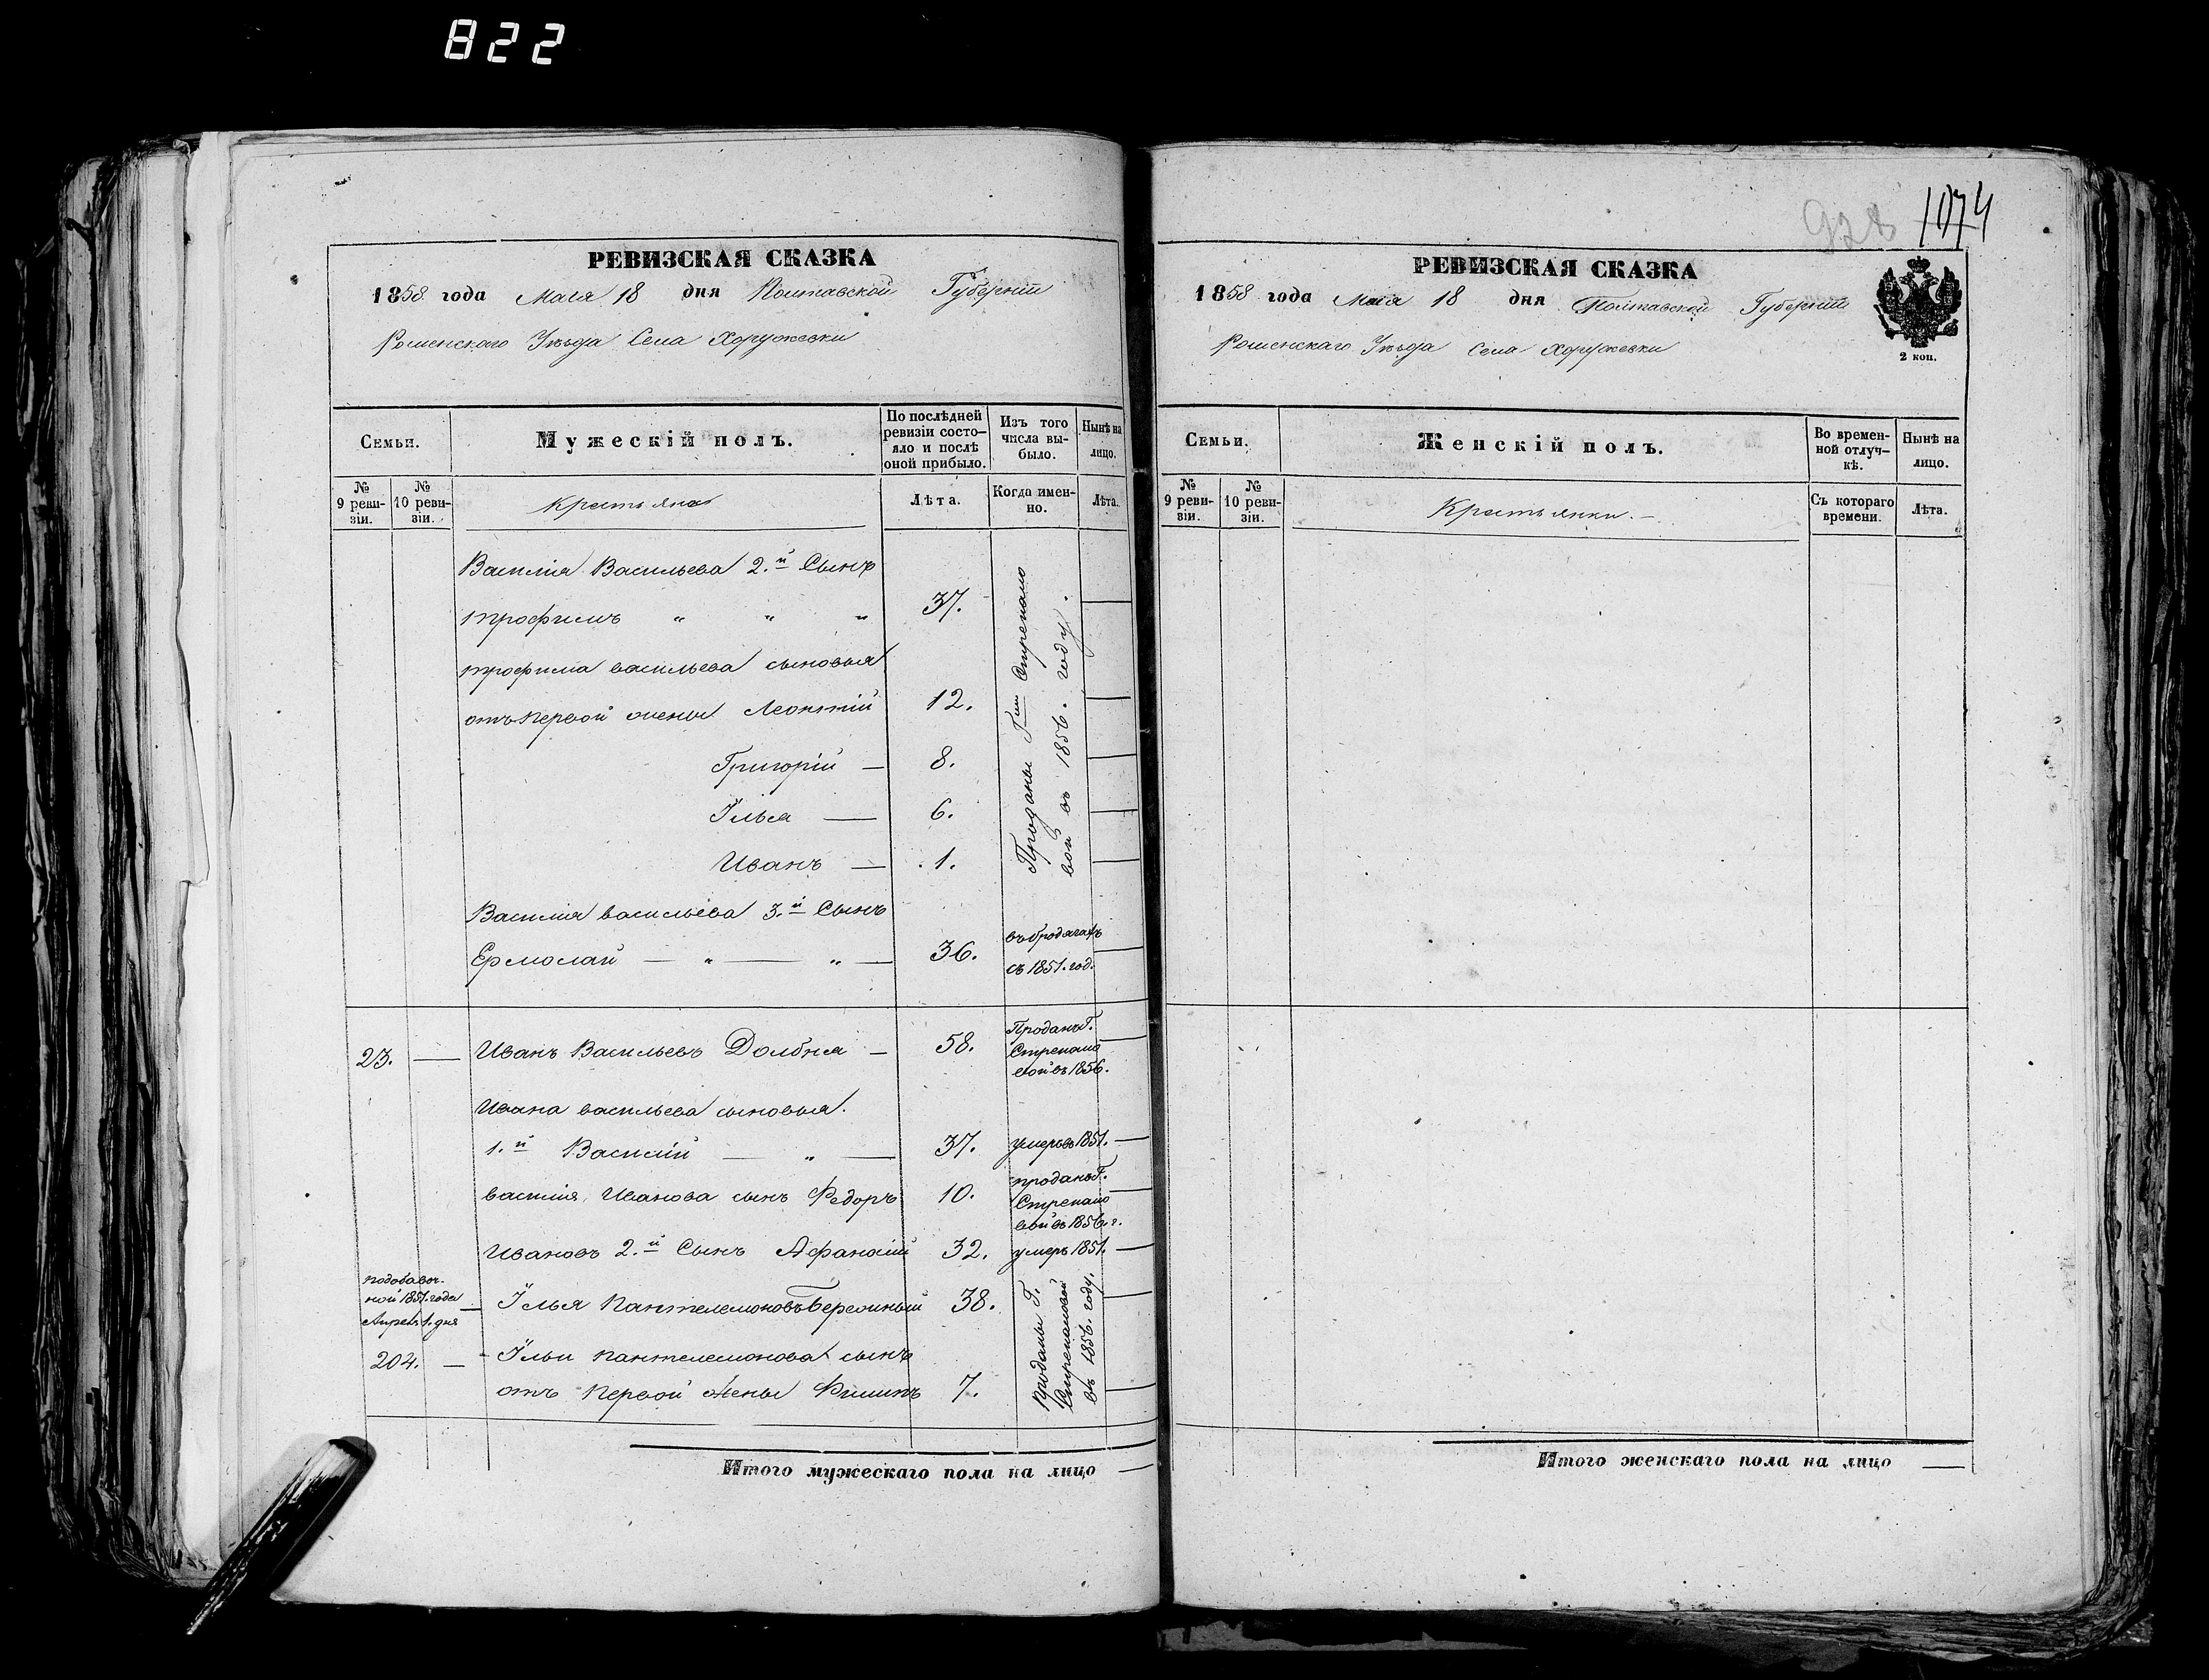 822
РЕВИЗСКАЯ СКАЗКА
1858 года Мая 18 дня Полтавской Губерніи
Роменскаго Уѣзда Села Хоружевки
Семьи.
Мужескій полъ.
По послѣдней ревизіи состо-яло и послѣ оной прибыло.
Изъ того числа вы-было.
Нынѣ на лицо.
№ 9 реви-зіи.
№ 10 реви-зіи.
Крестьяне
Лѣта.
Когда имен-но.
Лѣта.
Василія Васильева 2.й Сынъ
трофимъ " " " 37.
трофима васильева сыновья
отъ первой жены Леонтій 12.
Григорій — 8.
Илья — 6.
Иванъ — 1.
Проданы Г-жи Стремоуо
вой въ 1856. году.
Василія васильева 3.й Сынъ
Ермолай — " — " — 36. въ бродягахъ
съ 1851. год.
23. — Иванъ Васильевъ Долбня — 58. Проданъ Г.
вой въ 1856.
Ивана васильева сыновья.
1.й Василій — " — 37. умеръ въ 1851. —
василія Иванова сынъ Федоръ 10. проданъ Г.
вой въ 1856. г.
Ивановъ 2.й Сынъ Афанасій 32. умеръ 1851. —
ной 1851. года
Апреля 1. дня — Илья Пантелемоновъ 38.
204. — Ильи Пантелемонова сынъ
отъ первой жены Филипъ 7.
проданы Г.
въ 1856. году.
Итого мужескаго пола на лицо —
928 1074
РЕВИЗСКАЯ СКАЗКА
1858 года Мая 18 дня Полтавской Губерніи
Роменскаго Уѣзда Села Хоружевки
2 коп.
Семьи.
Женскій полъ.
Во времен-ной отлуч-кѣ.
Нынѣ на лицо.
№ 9 реви-зіи.
№ 10 реви-зіи.
Крестьянки. —
Съ котораго времени.
Лѣта.
Итого женскаго пола на лицо —